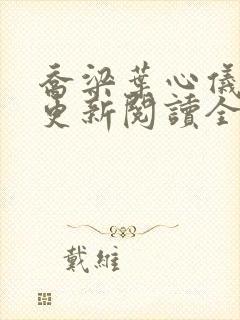 喬梁葉心儀
更新閱讀全
戴維